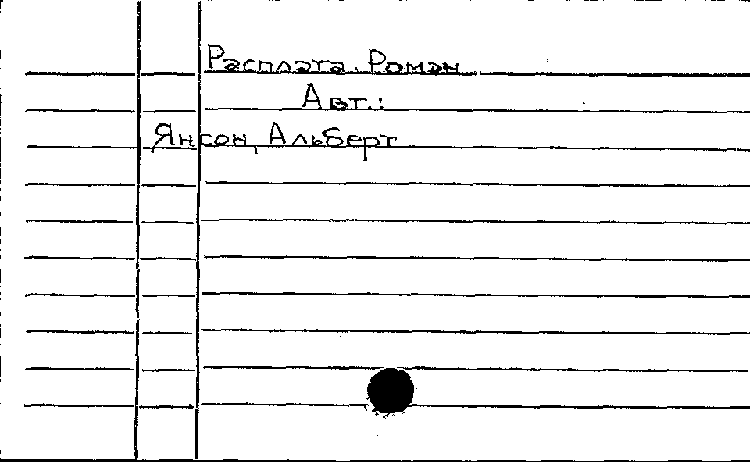 Расплата. Роман
Авт.:
Янсон, Альберт